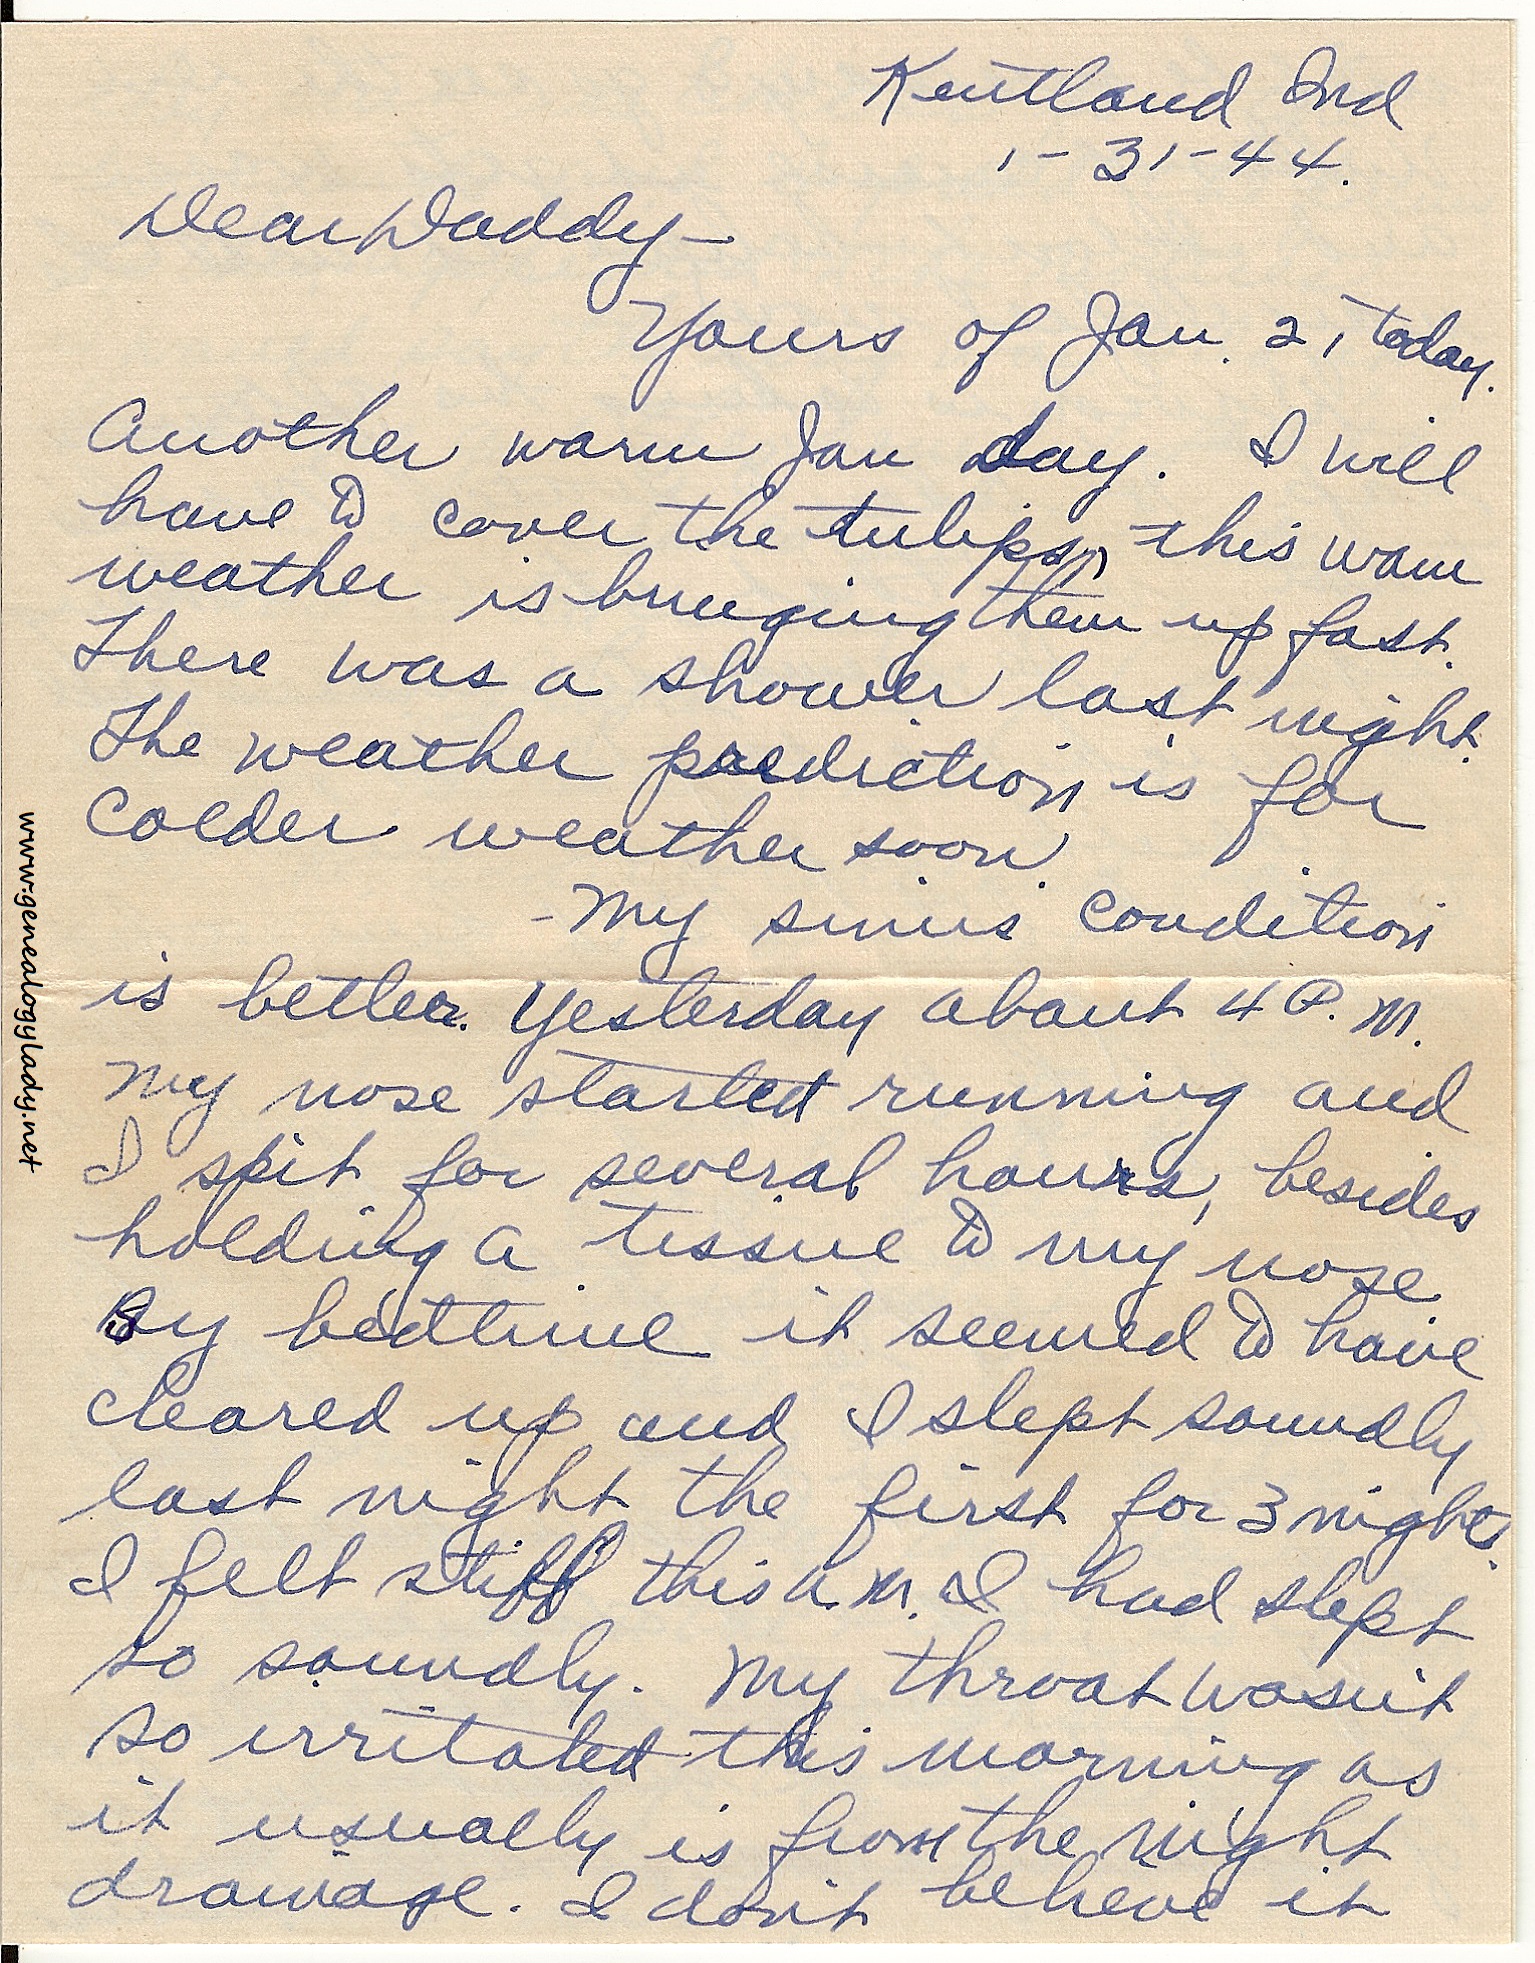 Kentland Ind
1-31-44.
Dear Daddy-
Yours of Jan. 21 today.
Another warm Jan day. I will
have to cover the tulips, this warm
weather is bringing them up fast.
There was a shower last night.
The weather prediction is for
colder weather soon.
- My sinus condition
is better. Yesterday about 4 P.M.
my nose started running and
I spit for several hours, besides
holding a tissue to my nose
By bedtime it seemed to have
cleared up and I slept soundly
last night the first for 3 nights.
I felt stiff this A.M. I had slept
so soundly. My throat wasn't
so irritated this morning as
it usually is from the night
drainage. I don't believe it
www.genealogylady.net